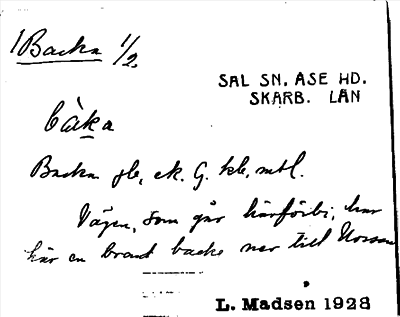 1 Backa 1/2
SAL SN. ÅSE HD.
SKARB. LÄN
bàka
Backa gb, ek. G. kb, mtl.
Vägen, som går härförbi, har
här en brant backe ner till Nossan
L. Madsen 1928